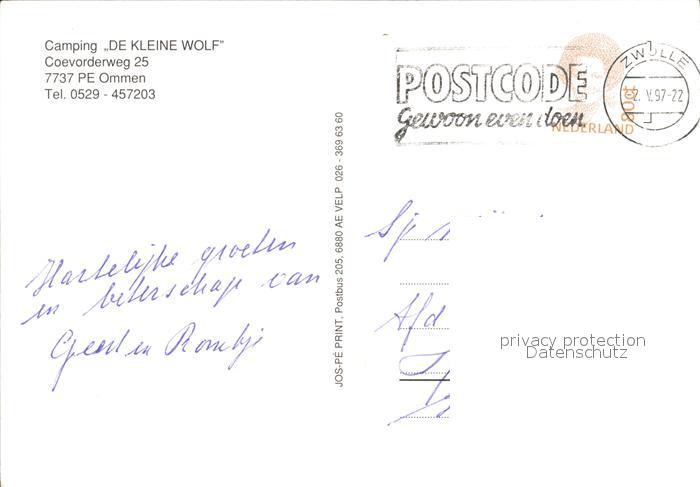 Camping „DE KLEINE WOLF”
Coevorderweg 25
7737 PE Ommen
Tel. 0529 - 457203
POSTCODE
Gewoon even doen
ZWOLLE
V.97-22
80c
NEDERLAND
JOS-PÉ PRINT, Postbus 205, 6880 AE VELP 026 - 369 63 60
Hartelijke groeten
en beterschap van
Geert en
Afd
privacy protection
Datenschutz